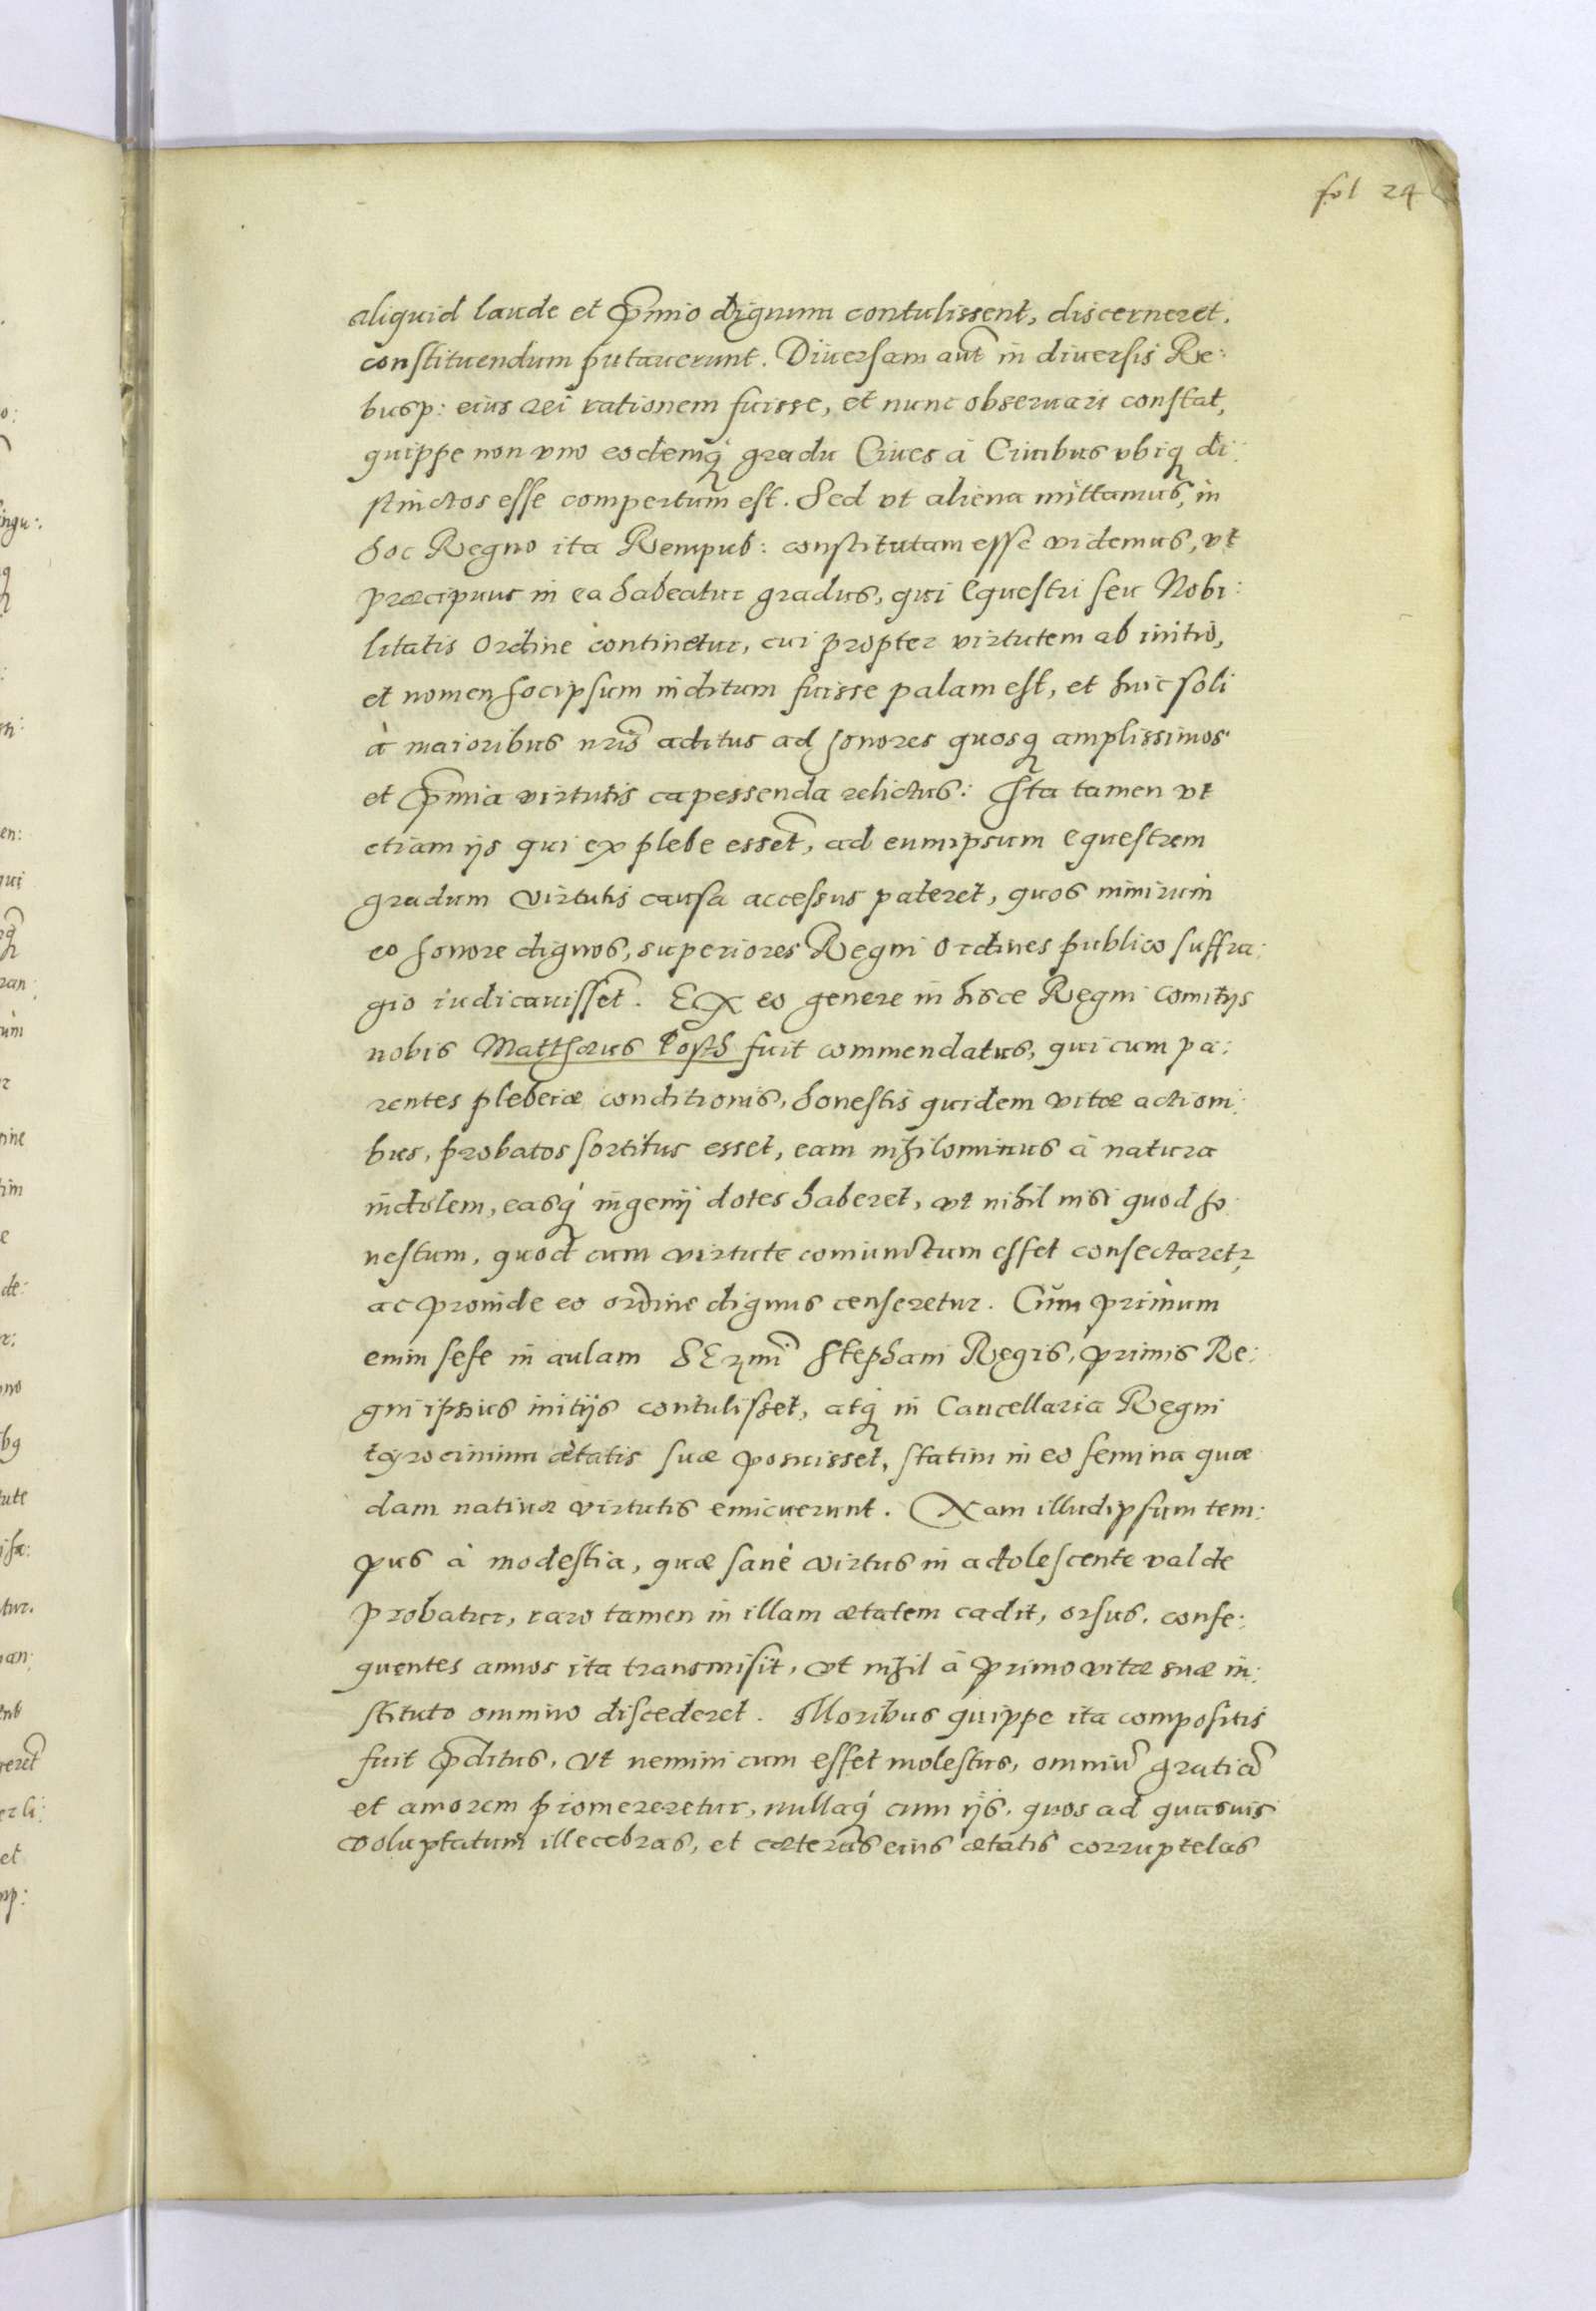 fol 24
aliquid laude et p̄mio dignum contulissent, discerneret,
constituendum putauerunt. Diuersam aūt in diuersis Re:
busp: eius rei rationem fuisse, et nunc obseruari constat,
quippe non vno eodemq́ gradu Ciues à Ciuibus vbiq́ di:
stinctos esse compertum est. Sed vt aliena mittamus, in
hoc Regno ita Rempub: constitutam esse videmus, vt
præcipuus in ea habeatur gradus, qui Equestri seu Nobi:
litatis Ordine continetur, cui propter virtutem ab initio,
et nomen hocipsum inditum fuisse palam est, et huic soli
à maioribus nr̄is aditus ad honores quosq́ amplissimos
et p̄mia virtutis capessenda relictus: Ita tamen vt
etiam ijs qui ex plebe essēt, ad eumipsum equestrem
gradum virtutis causa accessus pateret, quos nimirum
eo honore dignos, superiores Regni Ordines publico suffra:
gio iudicauissēt. Ex eo genere in hisce Regni comitijs
nobis Matthæus fuit commendatus, qui cum pa:
rentes plebeiæ conditionis, honestis quidem vitæ actioni:
bus, probatos sortitus esset, eam nihilominus à natura
indolem, easq́ ingenij dotes haberet, vt nihil nisi quod ho:
nestum, quod cum virtute coniunctum esset consectaretr,
ac proinde eo ordine dignus censeretur. Cùm primum
enim sese in aulam SErmī Stephani Regis, primis Re:
gni ipsius initijs contulisset, atq́ in Cancellaria Regni
tyrocinium ætatis suæ posuisset, statim in eo semina quæ
dam natiuæ virtutis emicuerunt. Nam illudipsum tem:
pus à modestia, quæ sanè virtus in adolescente valde
probatur, raro tamen in illam ætatem cadit, orsus, conse:
quentes annos ita transmisit, vt nihil à primo vitæ suæ in:
stituto omnino discederet. Moribus quippe ita compositis
fuit p̄ditus, vt nemini cum esset molestus, omniū gratiā
et amorem promereretur, nullaq́ cum ijs, quos ad quasuis
voluptatum illecebras, et cæteras eius ætatis corruptelas